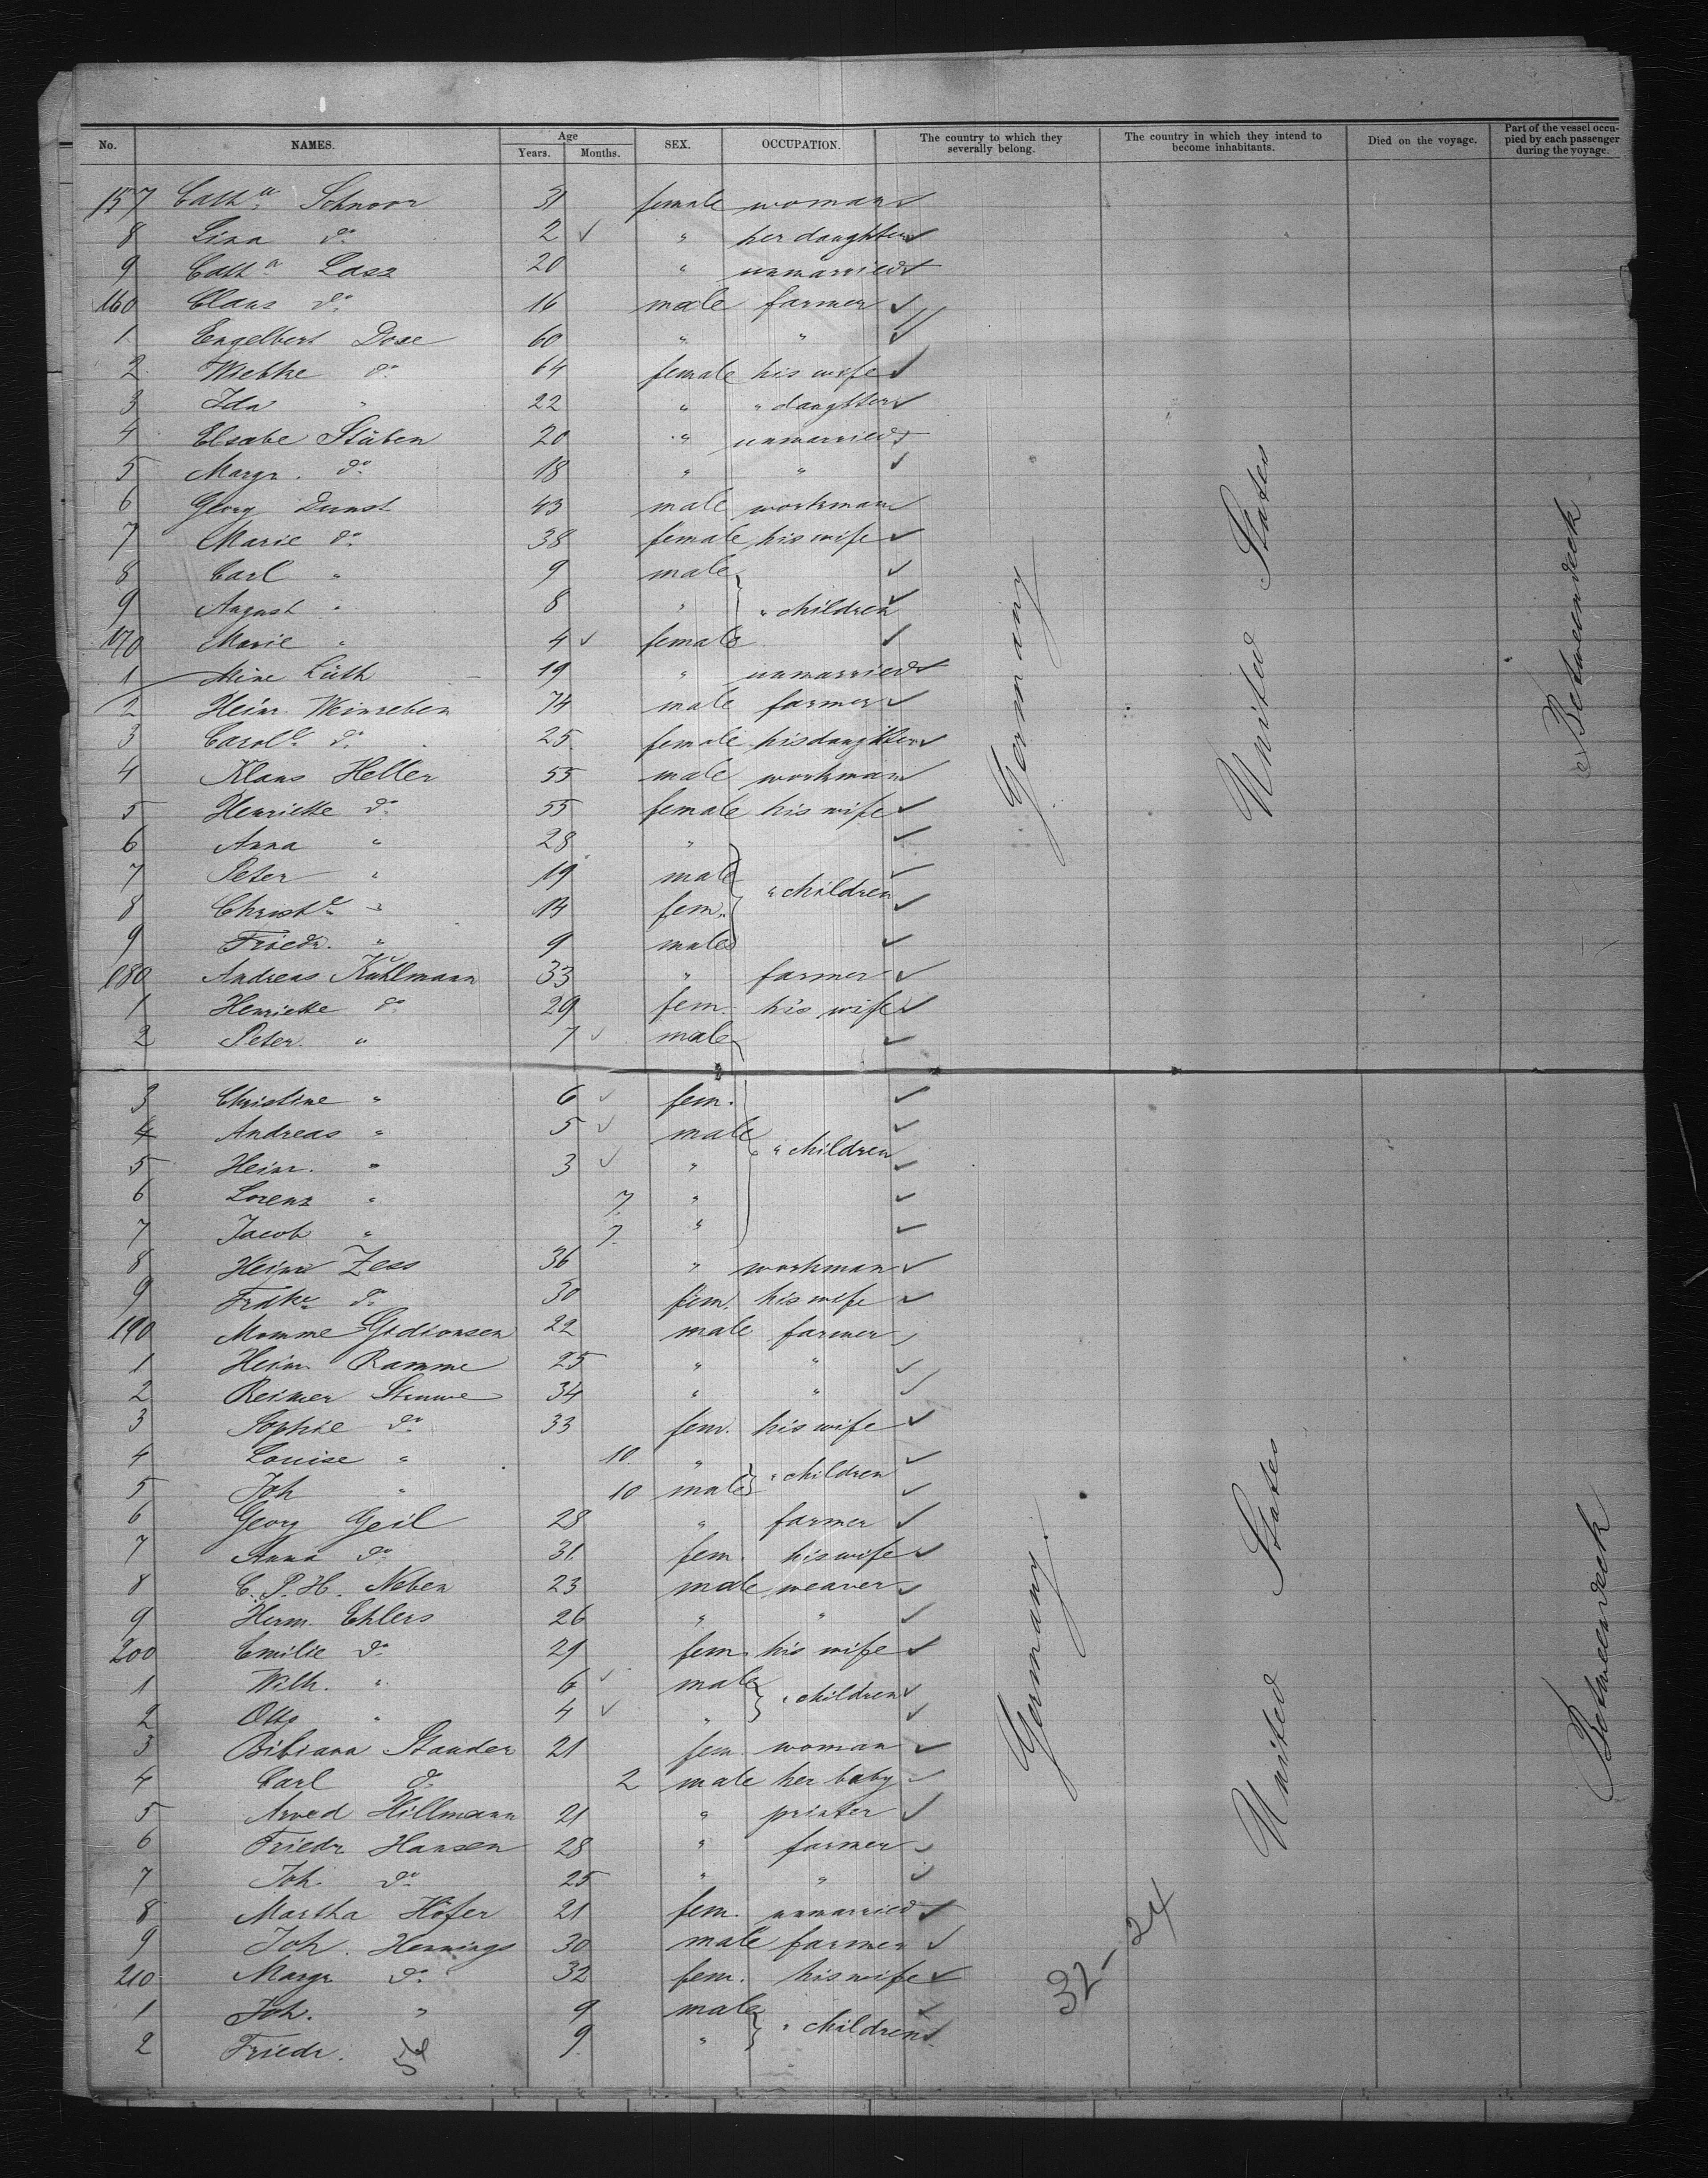 No. NAMES. Age Years. Months. SEX. OCCUPATION. The country to which they severally belong. The country in which they intend to become inhabitants. Died on the voyage. Part of the vessel occupied by each passenger during the voyage.
157 Catha. Schnoor 31 female woman
8 Lina do. 2 " her daughter
9 Catha Lasz 20 " unmarried
160 Claus do. 16 male farmer
1 Engelbert Dose 60 " "
2 Wiebke do. 64 female his wife
3 Ida " 22 " " daughter
4 Elsabe Stüben 20 " unmarried
5 Margr. do. 18 " "
6 Georg Dunst 43 male workman
7 Marie do. 38 female his wife
8 Carl " 9 male
9 August " 8 " " children
170 Marie " 4 female
1 Mine Lüth 19 " unmarried
2 Heinr. Weinreben 74 male farmer
3 Carole. do. 25 female his daughter
4 Klaus Heller 55 male workman
5 Henriette do. 55 female his wife
6 Anna " 28 "
7 Peter " 19 male " children
8 Christe. " 14 fem.
9 Friedr. " 9 male
180 Andreas Kühlmann 33 " farmer
1 Henriette do. 29 fem. his wife
2 Peter " 7 male
3 Christine " 6 fem.
4 Andreas " 5 male " children
5 Heinr. " 3 "
6 Lorenz " 7 "
7 Jacob " 7 "
8 Heinr Zess 36 " workman
9 Fridke. do. 30 fem. his wife
190 Momme Gidionsen 22 male farmer
1 Heinr. Ramme 25 " "
2 Reimer Struwe 34 " "
3 Sophie do. 33 fem. his wife
4 Louise " 10 "
5 Joh " 10 male " children
6 Georg Geil 28 " farmer
7 Anna do. 31 fem. his wife
8 C. P. H. Neben 23 male weaver
9 Herm. Ehlers 26 " "
200 Emilie do. 29 fem. his wife
1 Wilh. " 6 male " children
2 Otto " 4 "
3 Bibiana Stauder 21 fem. woman
4 Carl do. 2 male her baby
5 Arved Hillmann 21 " printer
6 Friedr Hansen 28 " farmer
7 Joh. do. 25 " "
8 Martha Höfer 21 fem. unmarried
9 Joh. Hennings 30 male farmer
210 Margr do. 32 fem. his wife
1 Joh. " 9 male " children
2 Friedr. 9 "
Germany
United States
Betweendeck
Germany.
United States
Betweendeck
32-24